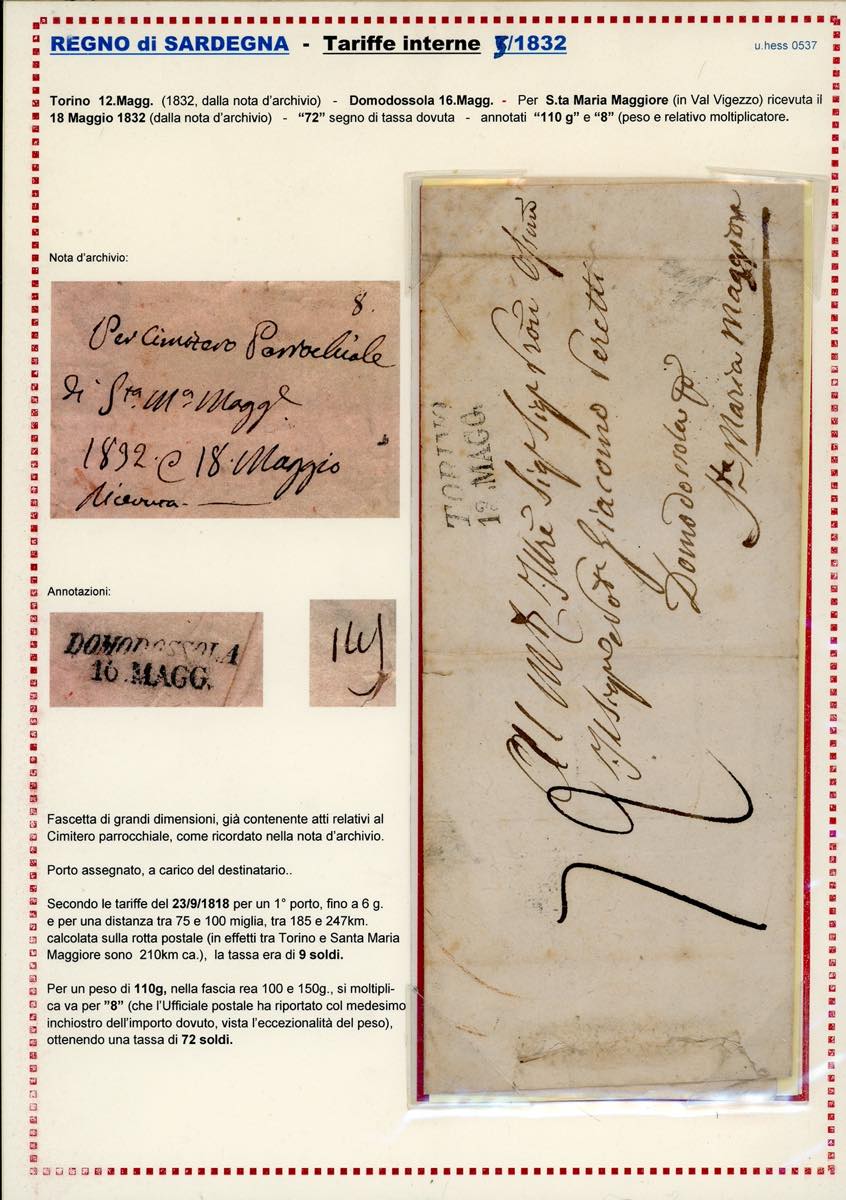 REGNO di SARDEGNA - Tariffe interne 5/1832
u.hess 0537
Torino 12.Magg. (1832, dalla nota d'archivio) - Domodossola 16.Magg. - Per S.ta Maria Maggiore (in Val Vigezzo) ricevuta il
18 Maggio 1832 (dalla nota d'archivio) - “72” segno di tassa dovuta - annotati “110 g” e “8” (peso e relativo moltiplicatore.
Nota d'archivio:
8.
Per Cimitero Parrochiale
di Sta. Ma Magge
1832 18 Maggio
Ricevuta
Annotazioni:
DOMODOSSOLA
16 MAGG.
Fascetta di grandi dimensioni, già contenente atti relativi al
Cimitero parrocchiale, come ricordato nella nota d'archivio.
Porto assegnato, a carico del destinatario..
Secondo le tariffe del 23/9/1818 per un 1° porto, fino a 6 g.
e per una distanza tra 75 e 100 miglia, tra 185 e 247km.
calcolata sulla rotta postale (in effetti tra Torino e Santa Maria
Maggiore sono 210km ca.), la tassa era di 9 soldi.
Per un peso di 110g, nella fascia rea 100 e 150g., si moltipli-
ca va per ”8” (che l'Ufficiale postale ha riportato col medesimo
inchiostro dell'importo dovuto, vista l'eccezionalità del peso),
ottenendo una tassa di 72 soldi.
TORINO
12 MAGG.
Giacomo Peretti
Domodossola
Sta Maria Maggiore
72